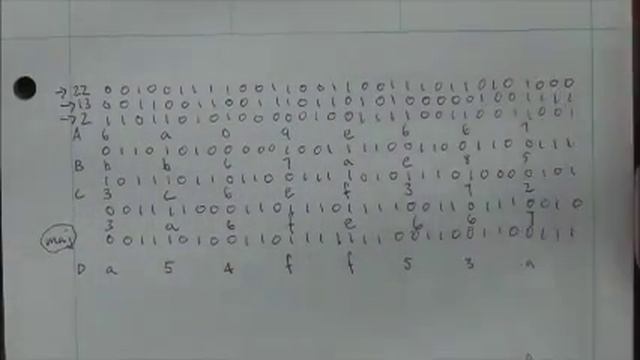 → 22 0 0 1 0 0 1 1 1 1 0 0 1 1 0 0 1 1 0 0 1 1 1 0 1 1 0 1 0 1 0 0 0
→ 13 0 0 1 1 0 0 1 1 0 0 1 1 1 0 1 1 0 1 0 1 0 0 0 0 0 1 0 0 1 1 1 1
→ 2 1 1 0 1 1 0 1 0 1 0 0 0 0 0 1 0 0 1 1 1 1 0 0 1 1 0 0 1 1 0 0 1
A 6 a 0 9 e 6 6 7
0 1 1 0 1 0 1 0 0 0 0 0 1 0 0 1 1 1 1 0 0 1 1 0 0 1 1 0 0 1 1 1
B b b 6 7 a e 8 5
1 0 1 1 1 0 1 1 0 1 1 0 0 1 1 1 1 0 1 0 1 1 1 0 1 0 0 0 0 1 0 1
C 3 c 6 e f 3 7 2
0 0 1 1 1 1 0 0 0 1 1 0 1 1 1 0 1 1 1 1 0 0 1 1 0 1 1 1 0 0 1 0
3 a 6 f e 6 6 7
maj 0 0 1 1 1 0 1 0 0 1 1 0 1 1 1 1 1 1 1 0 0 1 1 0 0 1 1 0 0 1 1 1
D a 5 4 f f 5 3 a